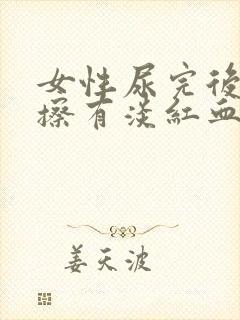 女性尿完後
擦有淡紅血
姜天波